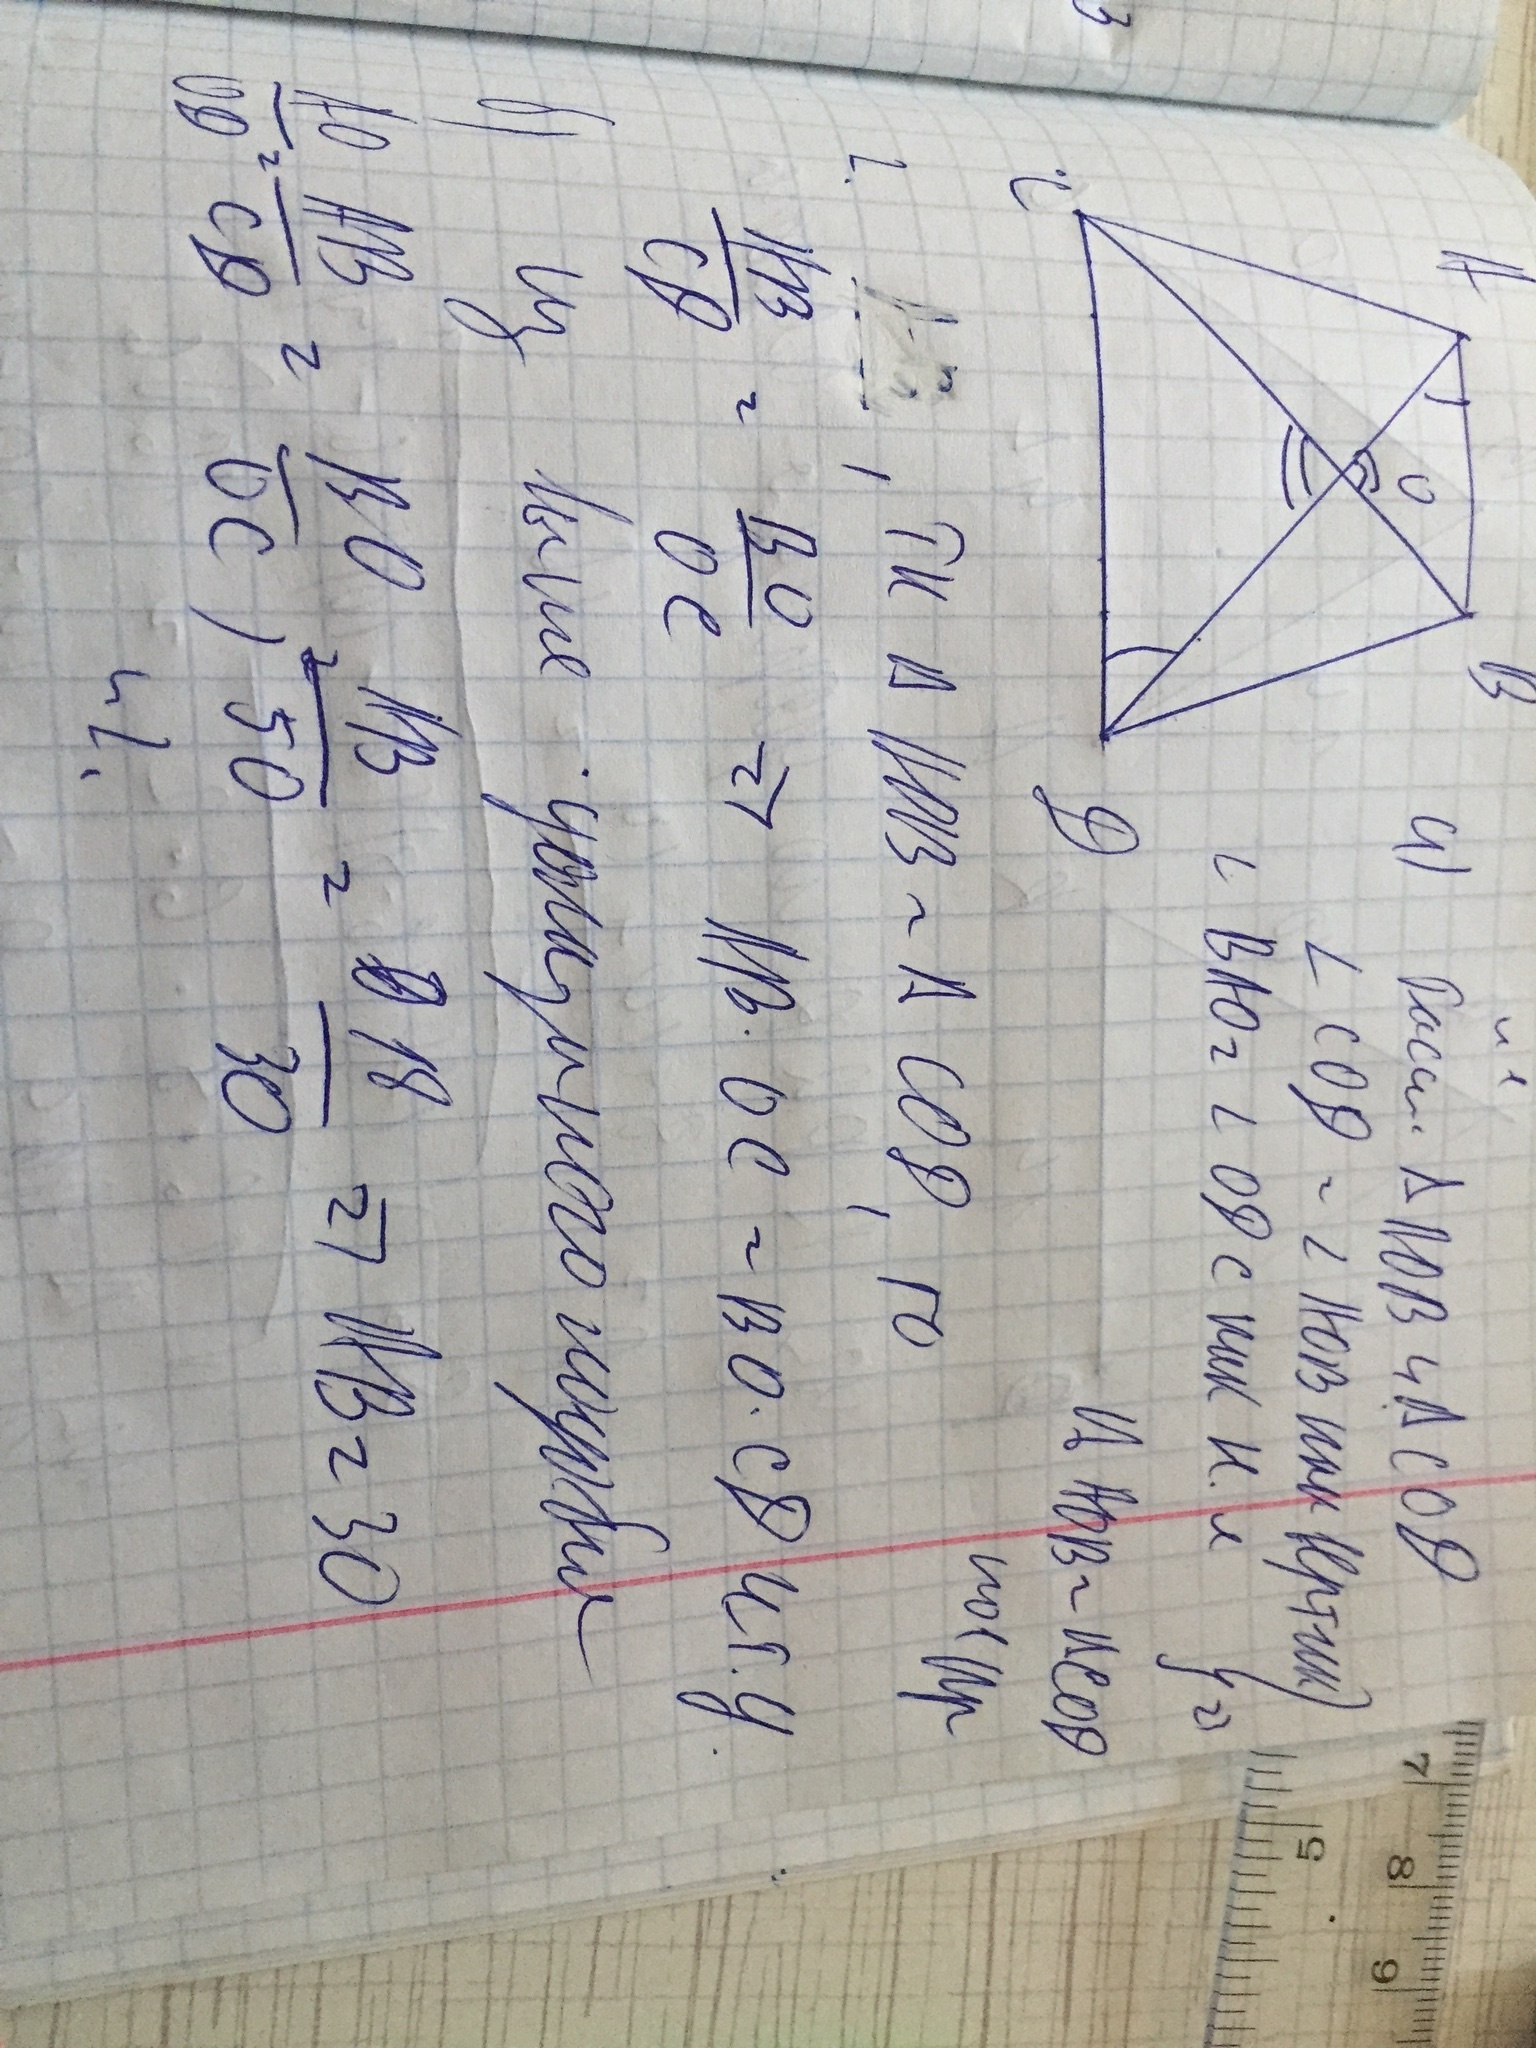 A
B
O
C
D
а) Рассм. Δ AOB и Δ COD
∠ COD = ∠ AOB как вертик
∠ BAO = ∠ ODC как н. л
Δ AOB ~ Δ COD
по I пр
, тк Δ AOB ~ Δ COD, то
AB/CD = BO/OC => AB · OC = BO · CD ч.т.д.
Из выше указанного
AO/OD = AB/CD = BO/OC ; AB/50 = 18/30 => AB = 30
7
8
9
5